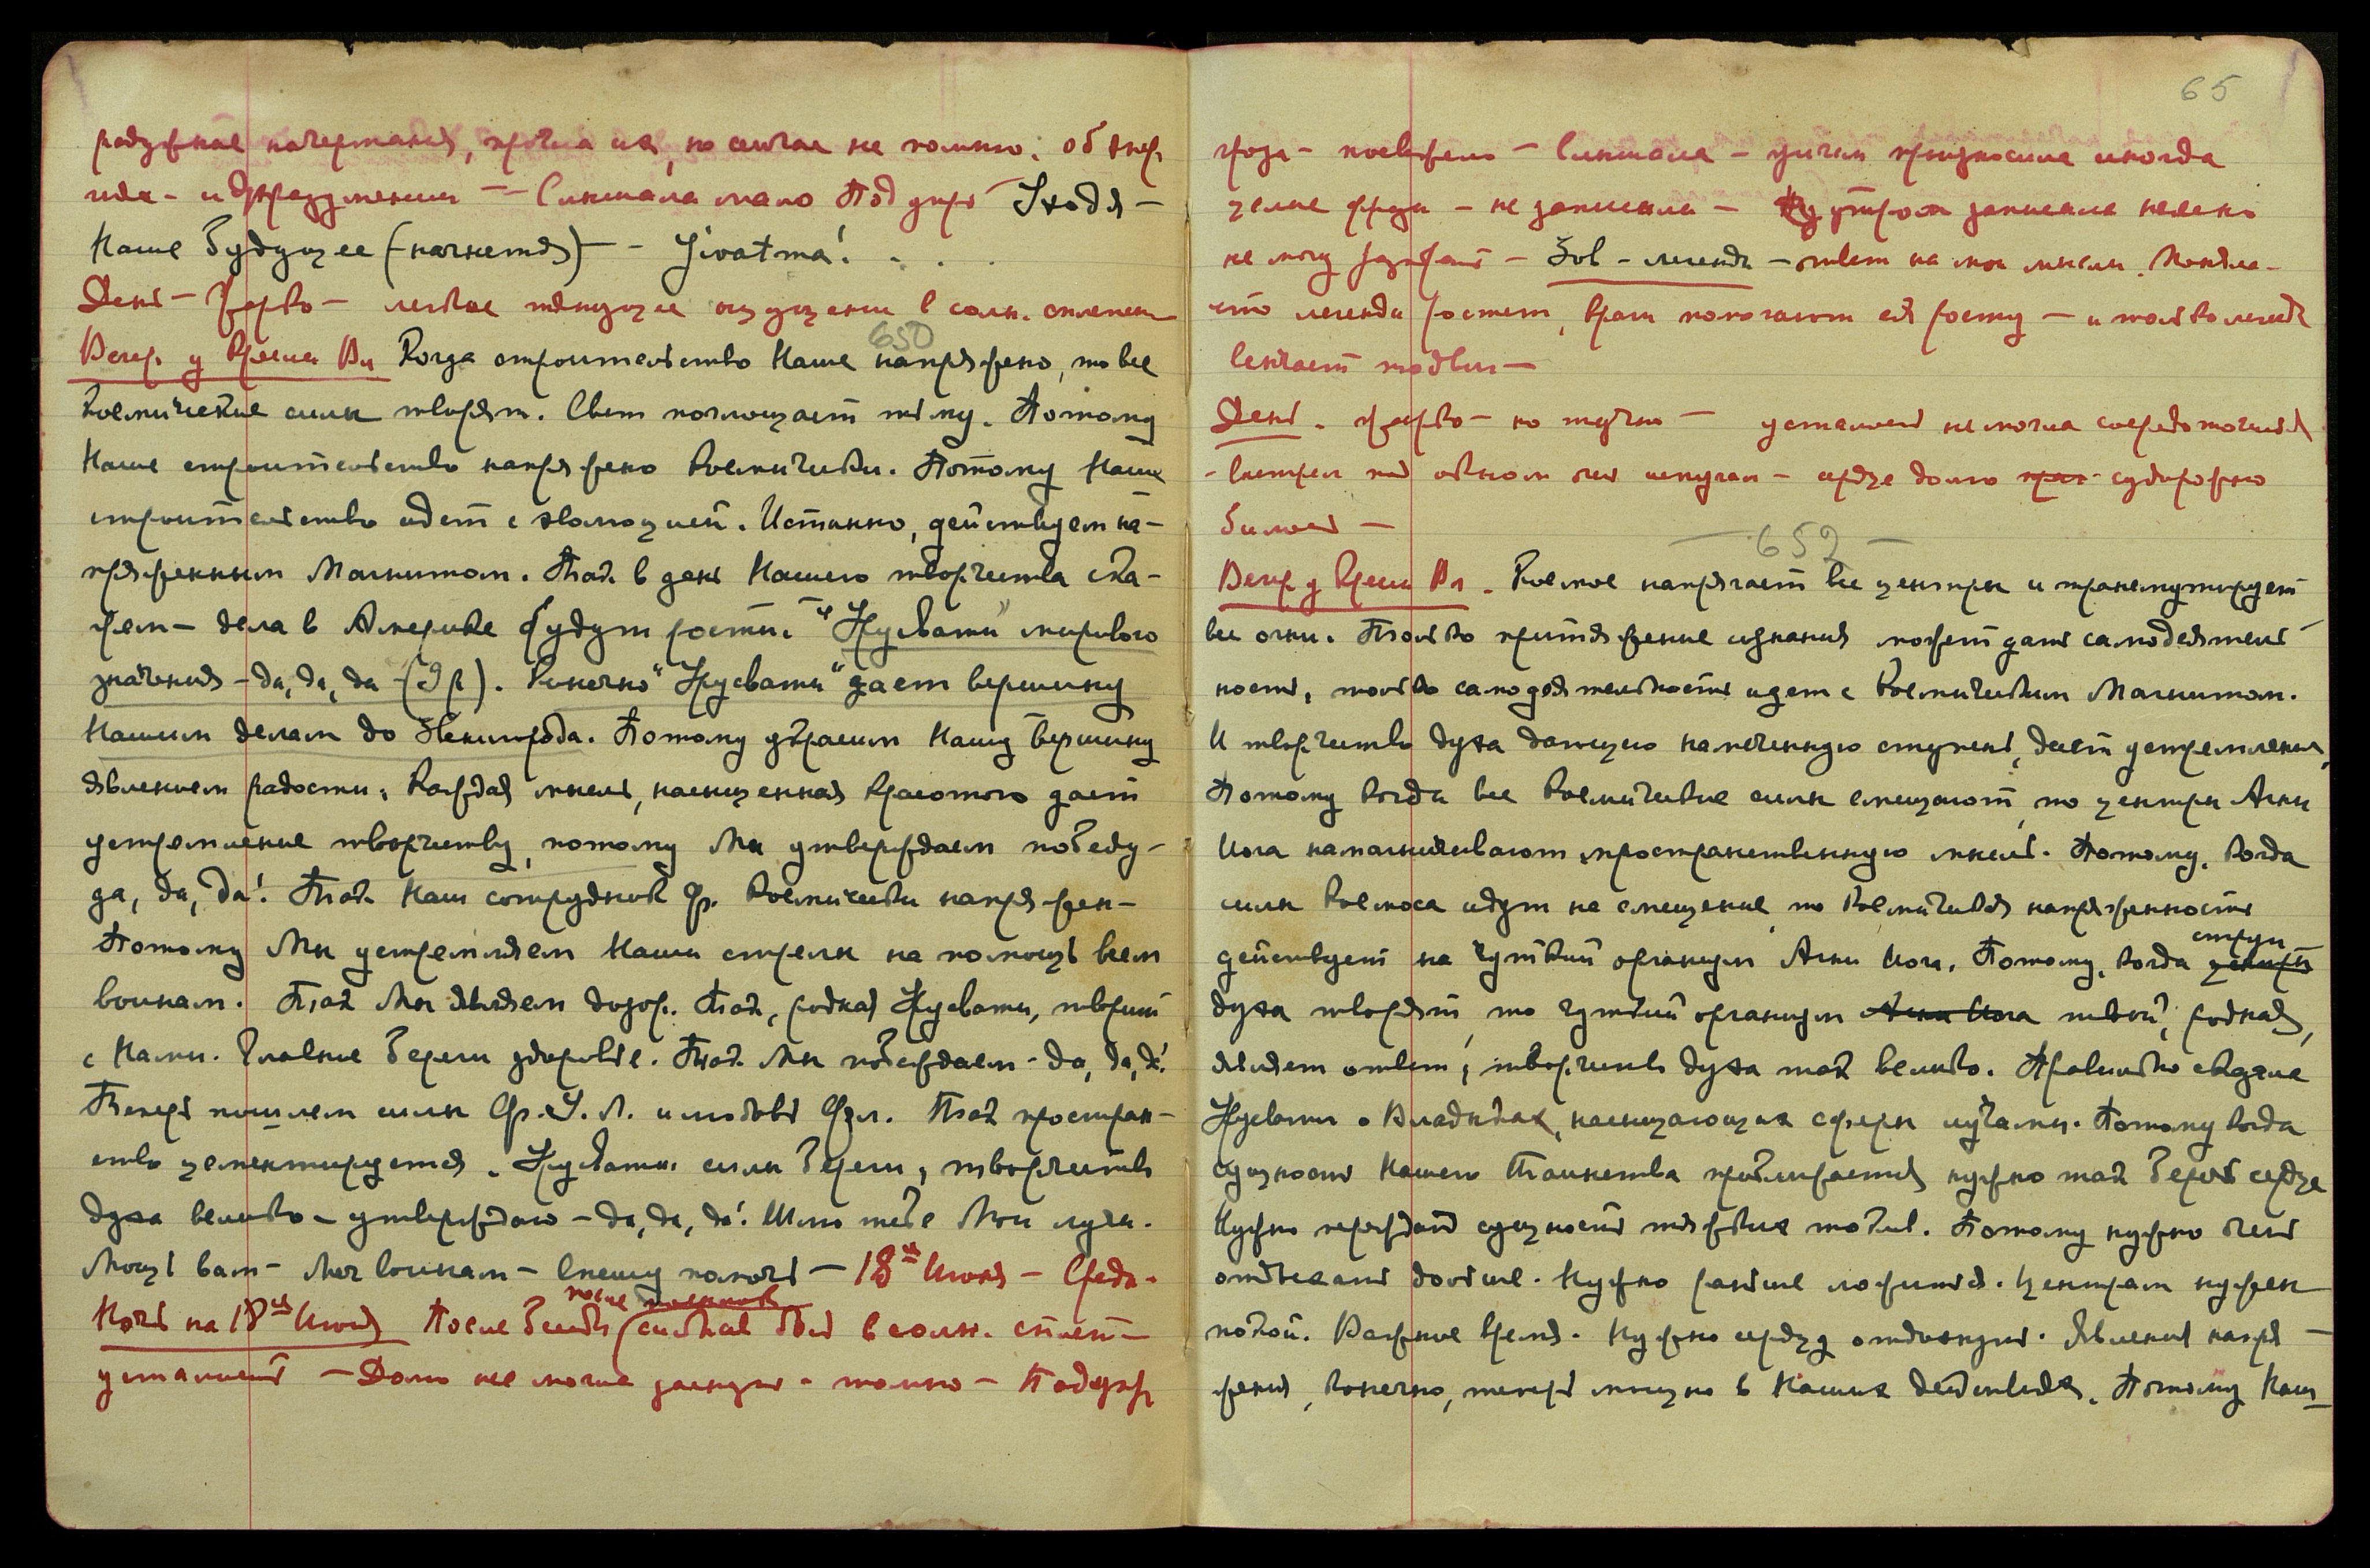 радужные начертания, прочла их, но сейчас не помню. об энер.
ида - и Слышала мало Под утро Уходя -
Наше будущее (начнется) - - Jivatma! . . .
День - Жарко - легкое тянущее ощущение в солн. сплетен
650
Вечер. у Кресла Вл Когда строительство Наше напряжено, то все
космические силы творят. Свет поглощает тьму. Потому
Наше строительство напряжено космически. Потому Наше
строительство идет с эволюцией. Истинно, действуем на-
пряженным Магнитом. Так в день Нашего творчества ска-
жем - дела в Америке будут расти. "Урусвати" мирового
значения - да, да, да - (Эр). Конечно "Урусвати" дает вершину
Нашим делам до Звенигорода. Потому украсим Нашу вершину
явлением радости. Каждая мысль, насыщенная красотою дает
устремление творчеству, потому Мы утверждаем победу -
да, да, да! Так Наш сотрудник Ф. космически напряжен -
Потому Мы устремляем Наши стрелы на помощь всем
воинам. Так Мы являем дозор. Так, родная Урусвати, творит
с Нами. Главное береги здоровье. Так Мы побеждаем - да, да, да!
Теперь пошлем силы Ф. У. Л. и любовь Фл. Так простран-
ство цементируется. Урусвати силы береги, творчество
духа велико - утверждаю - да, да, да! Шлю тебе Мои лучи.
Мощь вам - Меч воинам - Спешу помочь - 18ая Июня - Среда.
после полночи
Ночь на 18ая Июня После беседы (сильная боль в солн. сплет -
усталость - Долго не могла заснуть - томно - Под утр
65
гроза - посвежело - Слышала - учитель произносил иногда
целые фразы - не записала - утром записала неясно
не могу разобрать - Зов - легенды - ответ на мои мысли. Поняла -
что легенда растет, враги помогают ея росту - и только легенда
венчает подвиг -
День. жарко - но тучки - усталость не могла сосредоточиться
- выстрел под окном очень испугал - сердце долго судорожно
билось -
- 652 -
Вечер у Кресла Вл. Космос напрягает все центры и трансмутирует
все огни. Только притяжение сознания может дать самодеятель-
ность, только самодеятельность идет с Космическим Магнитом.
И творчество духа дающего намеченную ступень, дает устремления,
Потому когда все Космические силы смещают, то центры Агни
Йога намагничивают пространственную мысль. Потому, когда
силы Космоса идут на смещение то Космическая напряженность
действует на чуткий организм Агни Йога. Потому, когда струи
духа творят, то чуткий организм Агни Йога твой, родная,
являет ответ, творчество духа так велико. Правильно сказала
Урусвати о Владыках, насыщающих сферы лучами. Потому когда
сущность Нашего Таинства приближается нужно так беречь сердце
Нужно переждать сущность тяжких токов. Потому нужно очень
отдыхать дольше. Нужно раньше ложиться. Центрам нужен
покой. Важное время. Нужно сердцу отдохнуть. Явления напря -
жения, конечно, теперь мощно в Наших действиях. Потому Наш